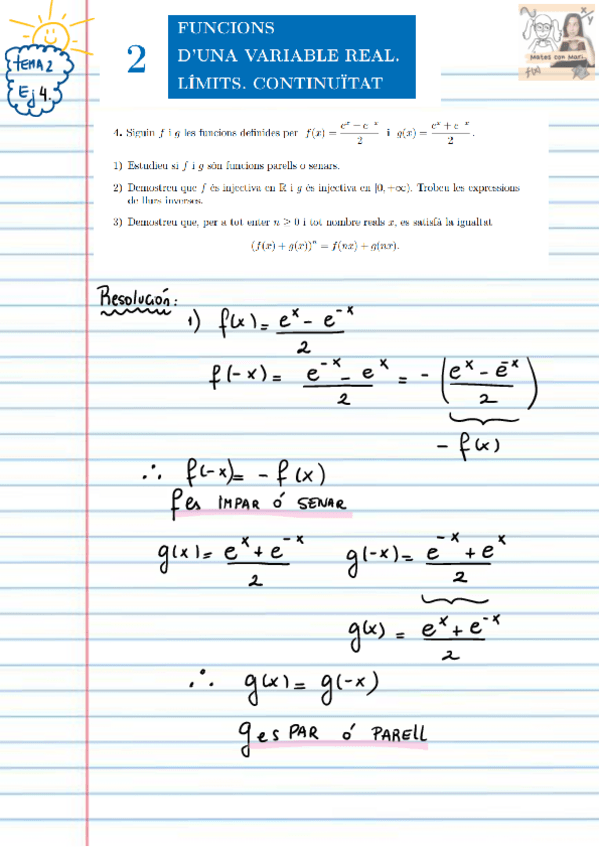 TEMA 2
Ej 4.
2
FUNCIONS
D'UNA VARIABLE REAL.
LÍMITS. CONTINUÏTAT
Mates con Mari
f(x)
x y
4. Siguin f i g les funcions definides per f(x) = (eˣ − e⁻ˣ)/2 i g(x) = (eˣ + e⁻ˣ)/2 .
1) Estudieu si f i g són funcions parells o senars.
2) Demostreu que f és injectiva en ℝ i g és injectiva en [0, +∞). Trobeu les expressions
de llurs inverses.
3) Demostreu que, per a tot enter n ≥ 0 i tot nombre reals x, es satisfà la igualtat
(f(x) + g(x))ⁿ = f(nx) + g(nx).
Resolución:
1) f(x) = (eˣ − e⁻ˣ)/2
f(-x) = (e⁻ˣ − eˣ)/2 = − ((eˣ − e⁻ˣ)/2)
− f(x)
∴ f(-x) = − f(x)
f es IMPAR Ó SENAR
g(x) = (eˣ + e⁻ˣ)/2 g(-x) = (e⁻ˣ + eˣ)/2
g(x) = (eˣ + e⁻ˣ)/2
∴ g(x) = g(-x)
g es PAR Ó PARELL